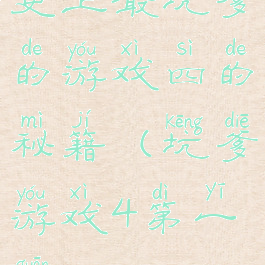 更上最坑爹
de yóu xì sì de
的游戏四的
mì jí kēng diē
秘籍(坑爹
yóu xì dì yī
游戏4第一
guān